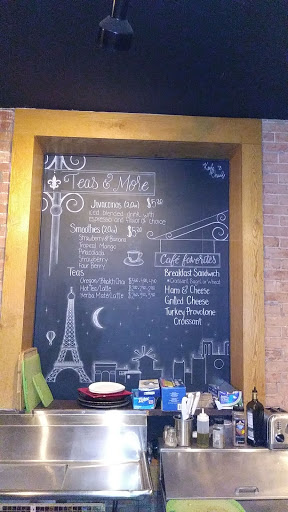 Teas & More
Javaccinos (12oz) $5.20
iced, blended drink with
espresso and flavor of choice
Smoothies (20oz) $5.20
Strawberry & Banana
Tropical Mango
Pina Colada
Strawberry
Four Berry
Teas
Oregon/Bhakti Chai
Hot Tea/Latte
Yerba Mate/Latte
Café favorites
Breakfast Sandwich
Croissant, Bagel, or Wheat
Ham & Cheese
Grilled Cheese
Turkey Provolone
Croissant